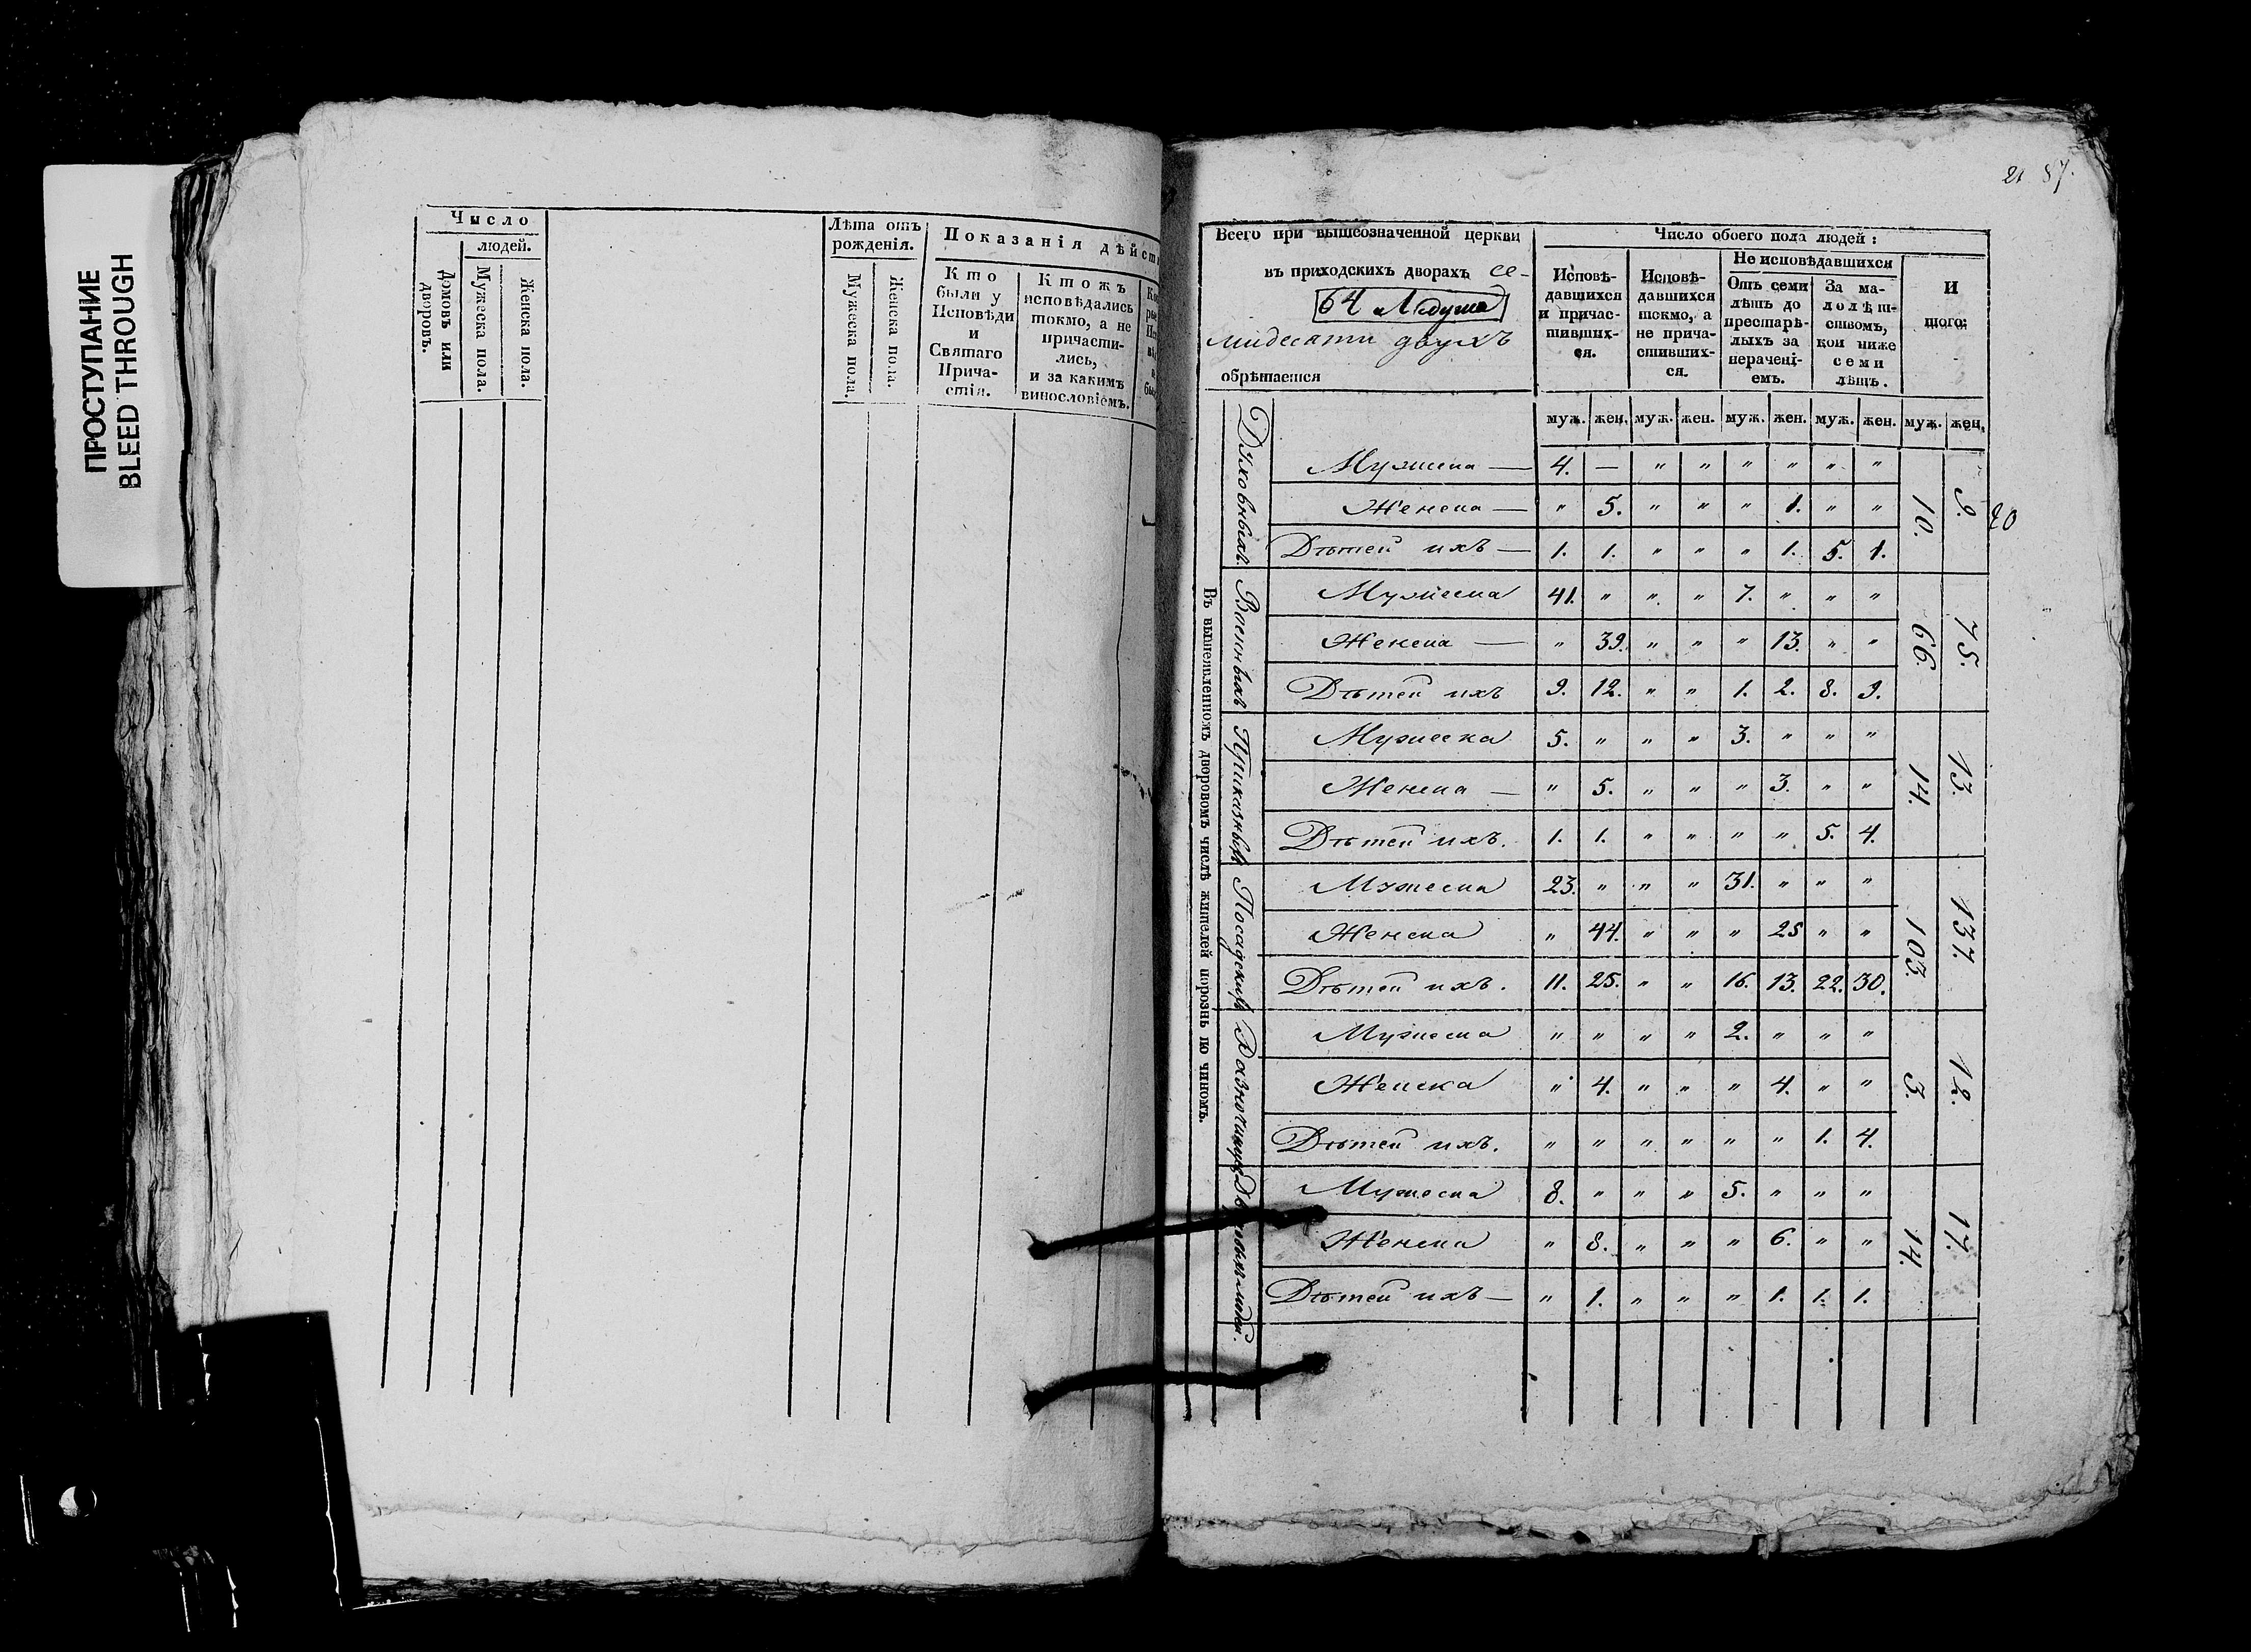 ПРОСТУПАНИЕ
BLEED THROUGH
Число
людей.
Домовъ или дворовъ.
Мужеска пола.
Женска пола.
Лѣта отъ
рожденія.
Мужеска пола.
Женска пола.
Показанія дѣйст
Кто
были у
Исповѣди
и
Святаго
Прича-
стія.
Ктожъ
исповѣдались
токмо, а не
причасти-
лись,
и за какимъ
винословіемъ.
21 87.
Всего при вышеозначенной церкви
въ приходскихъ дворахъ се-
64
мидесяти двухъ
обрѣтается
Число обоего пола людей:
Исповѣ-
давшихся
и причас-
тивших-
ся.
Исповѣ-
давшихся
токмо, а
не прича-
стивших-
ся.
Не исповѣдавшихся
Отъ семи
лѣтъ до
престарѣ-
лыхъ за
нерачені-
емъ.
За ма-
лолѣт-
ствомъ,
кои ниже
семи
лѣтъ.
И
того:
муж. жен. муж. жен. муж. жен. муж. жен. муж. жен.
Въ вышеявленномъ дворовомъ числѣ жителей порознь по чиномъ.
Духовныхъ.
Мужеска — 4. — " " " " " "
Женска — " 5. " " " 1. " "
Дѣтей ихъ — 1. 1. " " " 1. 5. 1.
10. 9. 20
Военныхъ
Мужеска 41. " " " 7. " " "
Женска — " 39. " " " 13. " "
Дѣтей ихъ 9. 12. " " 1. 2. 8. 9.
66. 75.
Приказныхъ
Мужеска 5. " " " 3. " " "
Женска — " 5. " " " 3. " "
Дѣтей ихъ. 1. 1. " " " " 5. 4.
14. 13.
Посадскихъ
Мужеска 23. " " " 31. " " "
Женска " 44. " " " 25 " "
Дѣтей ихъ. 11. 25. " " 16. 13. 22. 30.
103. 137.
Разночинцевъ
Мужеска " " " " 2. " " "
Женска " 4. " " " 4. " "
Дѣтей ихъ. " " " " " " 1. 4.
3. 12.
Дворовыхъ людей.
Мужеска 8. " " " 5. " " "
Женска " 8. " " " 6. " "
Дѣтей ихъ — " 1. " " " 1. 1. 1.
14. 17.